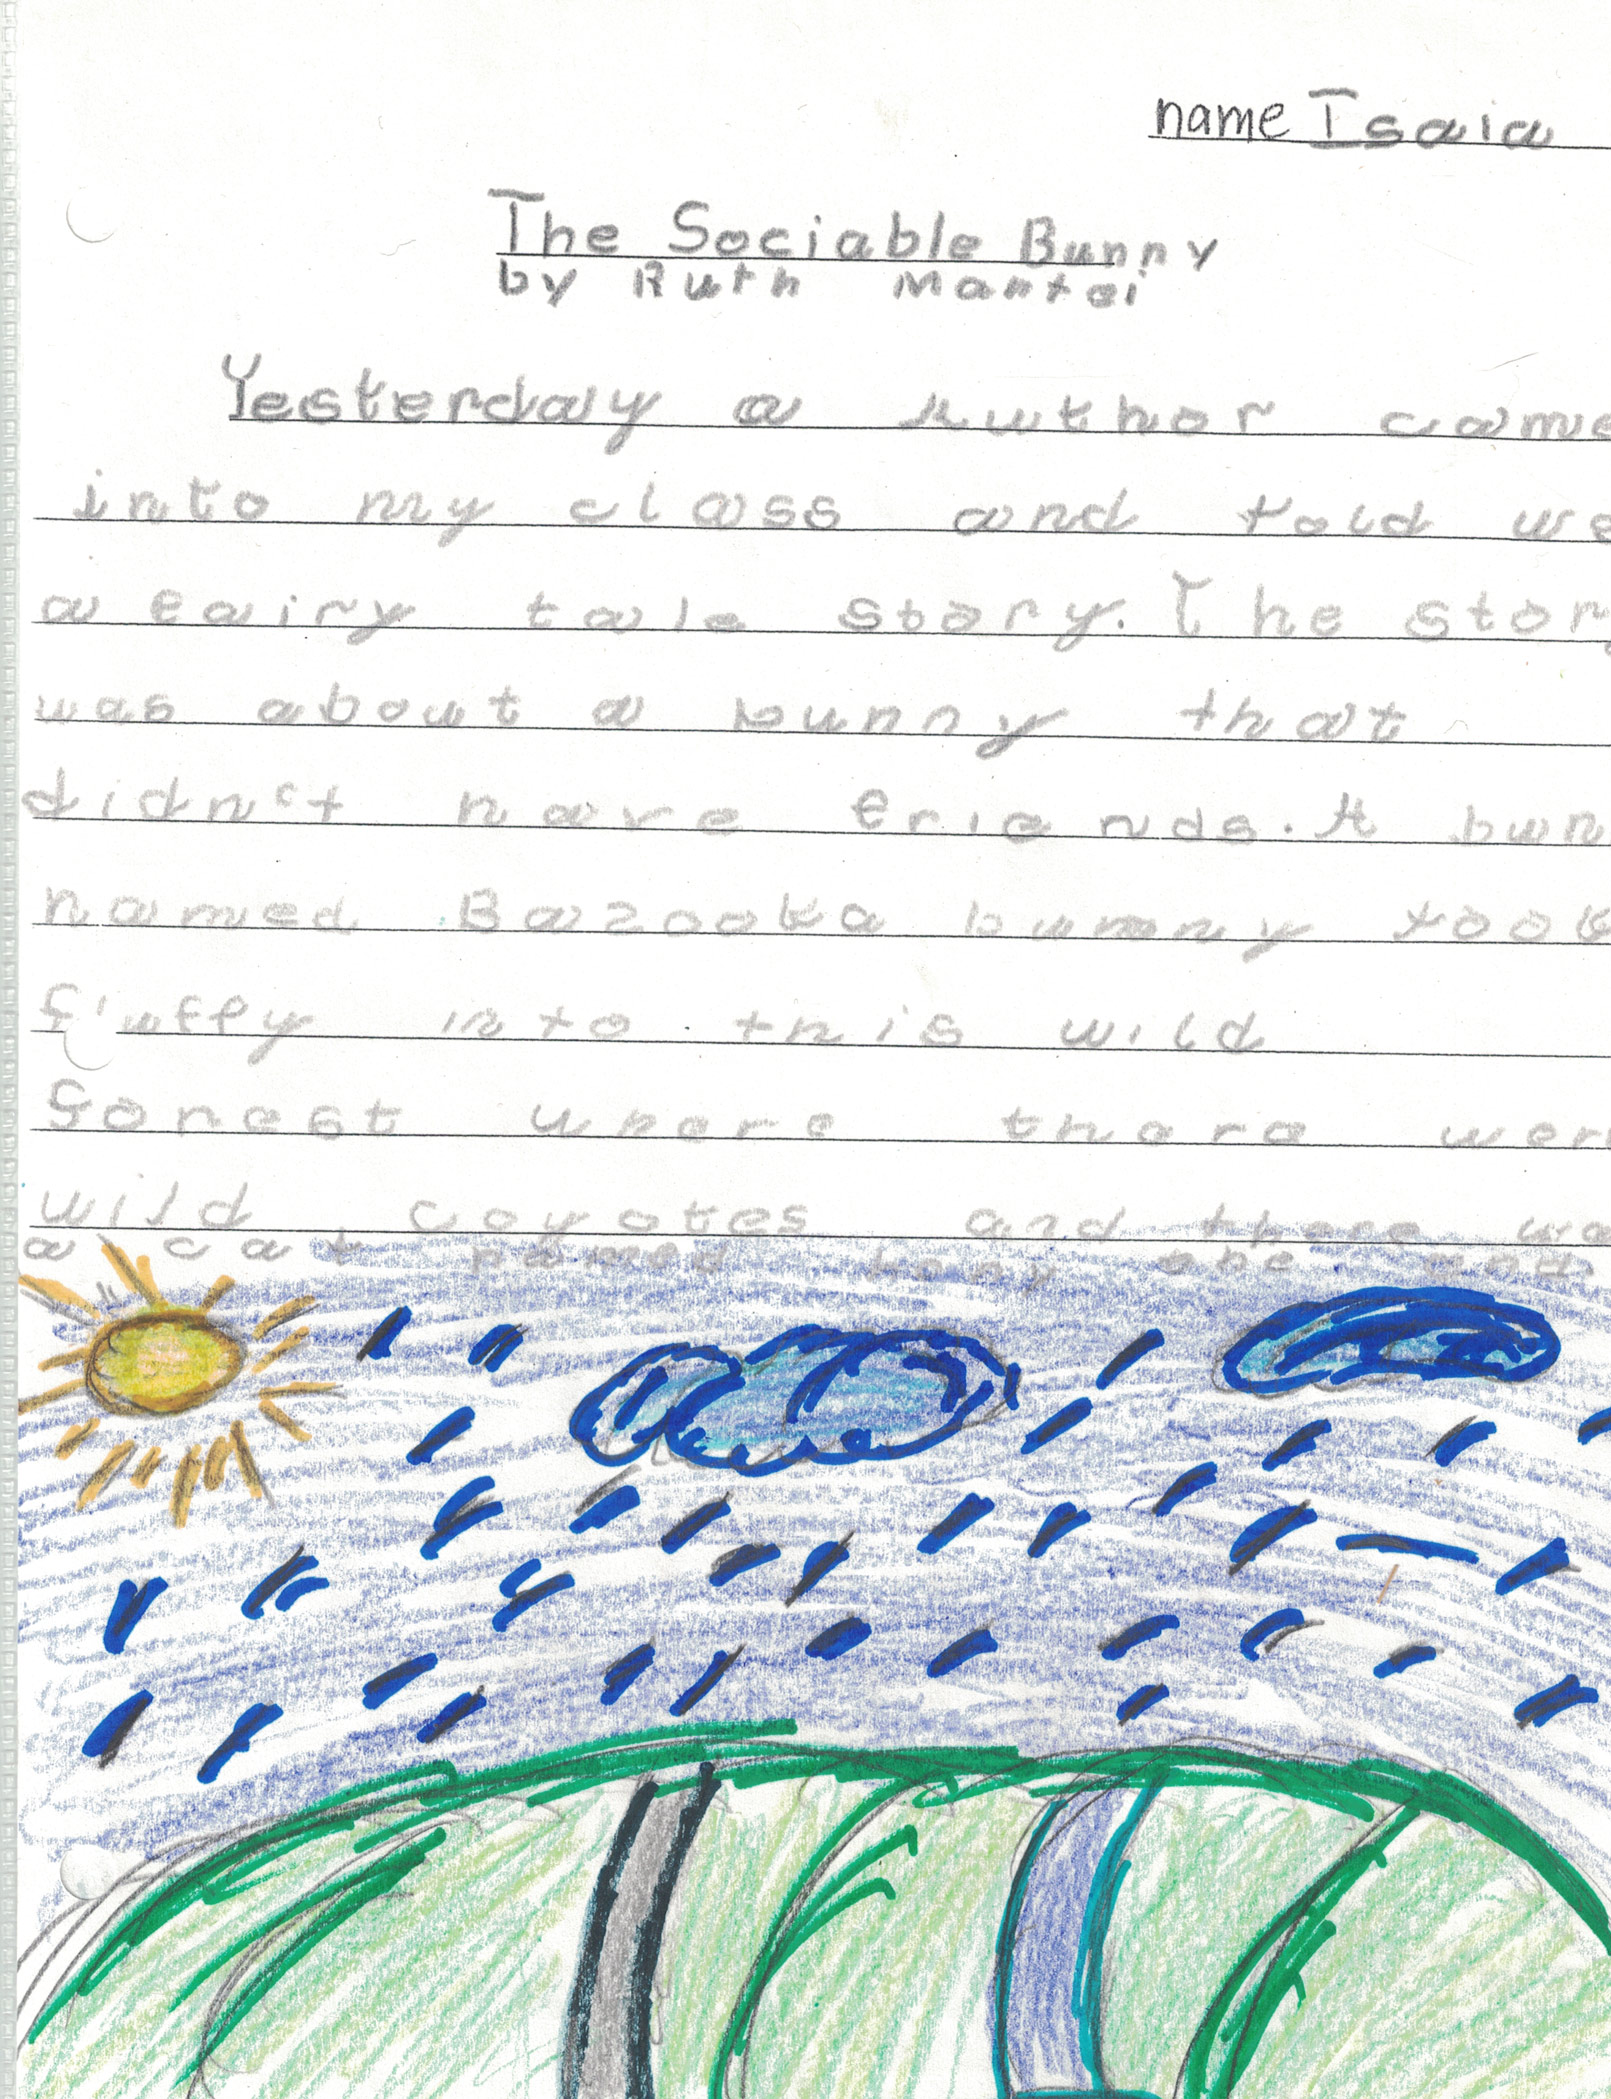 name Isaia
The Sociable Bunny
by Ruth Mantei
Yesterday a Author came
into my class and told we
a fairy tale story. The story
was about a bunny that
didn't have friends. A bun
named Bazooka bunny took
fluffy into this wild
forest where there wer
wild coyotes and there wa
a cat named tony the